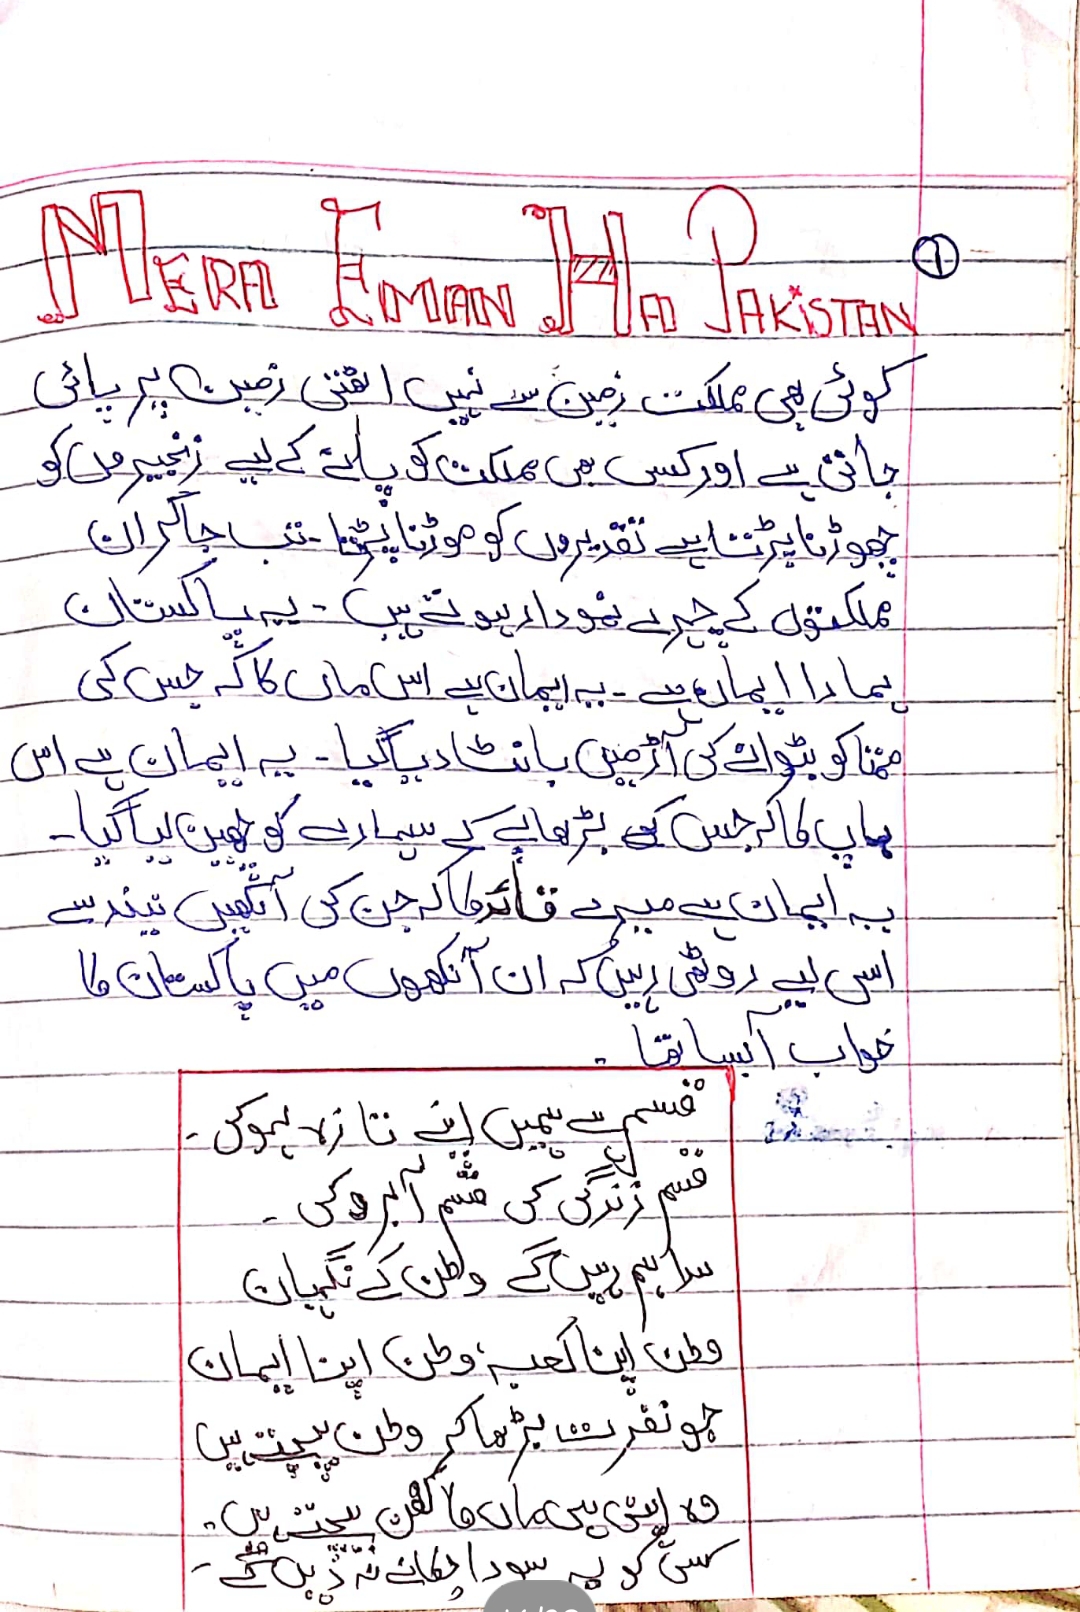 MERA EMAN HA PAKISTAN
1
کوئی بھی مملکت زمین سے نہیں اٹھتی زمین پر پائی
جاتی ہے اور کسی بھی مملکت کو پانے کے لیے زنجیروں کو
چھوڑنا پڑتا ہے تقدیروں کو موڑنا پڑتا - تب جا کر ان
مملکتوں کے چہرے نمودار ہوتے ہیں - یہ پاکستان
ہمارا ایمان ہے - یہ ایمان ہے اس ماں کا کہ جس کی
ممتا کو بٹوانے کی آڑ میں بانٹ دیا گیا - یہ ایمان ہے اس
باپ کا کہ جس کے بڑھاپے کے سہارے کو چھین لیا گیا -
یہ ایمان ہے میرے قائد کا کہ جن کی آنکھیں نیند سے
اسی لیے روٹھی رہیں کہ ان آنکھوں میں پاکستان کا
خواب آبسا تھا -
قسم ہے ہمیں اپنے تازہ لہو کی -
قسم زندگی کی قسم آبرو کی -
سدا ہم رہیں گے وطن کے نگہبان
وطن اپنا کعبہ، وطن اپنا ایمان
جو نفرت بڑھا کر وطن بیچتے ہیں
وہ اپنی ہی ماں کا کفن بیچتے ہیں -
کسی کو یہ سودا چکانے نہ دیں گے -